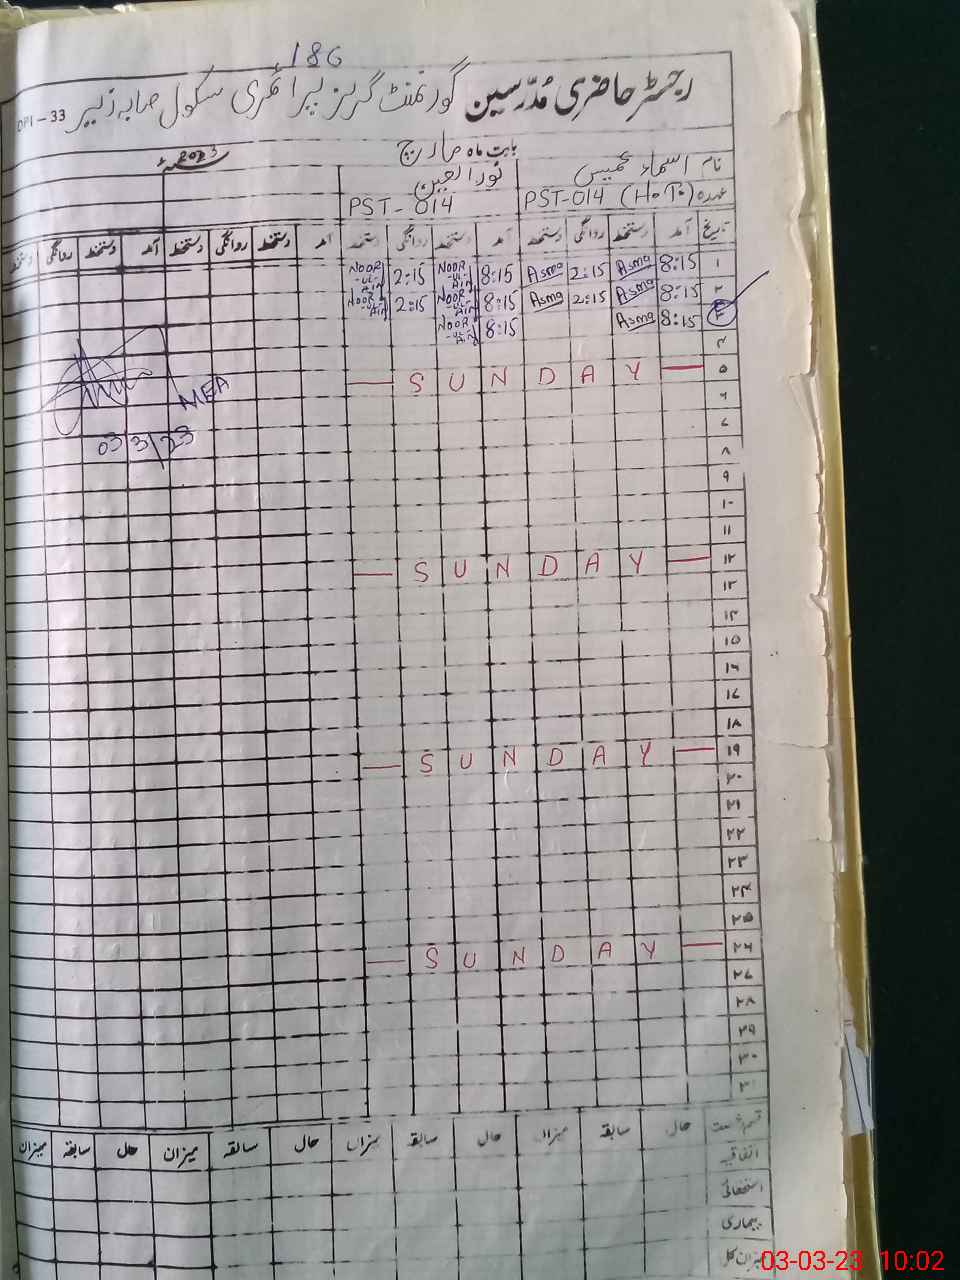 186
رجسٹر حاضری مُدرّسین گورنمنٹ گرلز پرائمری سکول صابہ زبیر DPI-33
بابت ماہ مارچ 2023
نام اسماء خمیس نور العین
عہدہ PST-014 (H.T) PST-014
تاریخ آمد دستخط روانگی دستخط آمد دستخط روانگی دستخط آمد دستخط روانگی دستخط آمد دستخط روانگی دستخط
۱ 8:15 Asma 2:15 Asma 8:15 NOOR-UL-AIN 2:15 NOOR-UL-AIN
۲ 8:15 Asma 2:15 Asma 8:15 NOOR-UL-AIN 2:15 NOOR-UL-AIN
۳ 8:15 Asma 8:15 NOOR-UL-AIN
۴
۵ — S U N D A Y —
MEA
۶
03/3/23
۷
۸
۹
۱۰
۱۱
۱۲ — S U N D A Y —
۱۳
۱۴
۱۵
۱۶
۱۷
۱۸
۱۹ — S U N D A Y —
۲۰
۲۱
۲۲
۲۳
۲۴
۲۵
۲۶ — S U N D A Y —
۲۷
۲۸
۲۹
۳۰
۳۱
قسم رخصت حال سابقہ میزان حال سابقہ میزان حال سابقہ میزان حال سابقہ میزان
اتفاقیہ
استحقاقی
بیماری
میزان کل
03-03-23 10:02